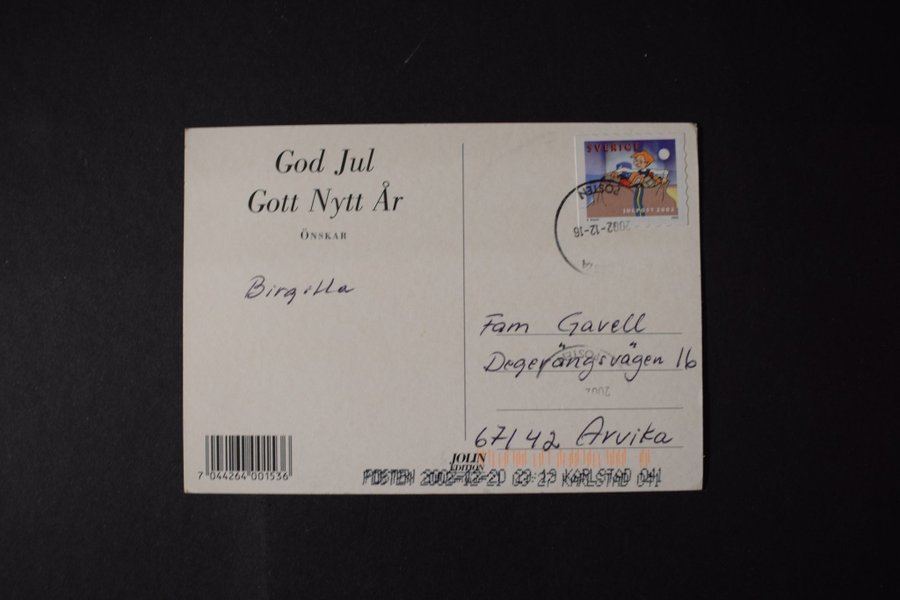 God Jul
Gott Nytt År
ÖNSKAR
Birgitta
SVERIGE
JULPOST 2002
POSTEN
2002-12-16
Fam Gavell
Degerängsvägen 16
POSTEN
2002
67142 Arvika
7 044264 001536
JOLIN
EDITION
POSTEN 2002-12-20 KARLSTAD 041